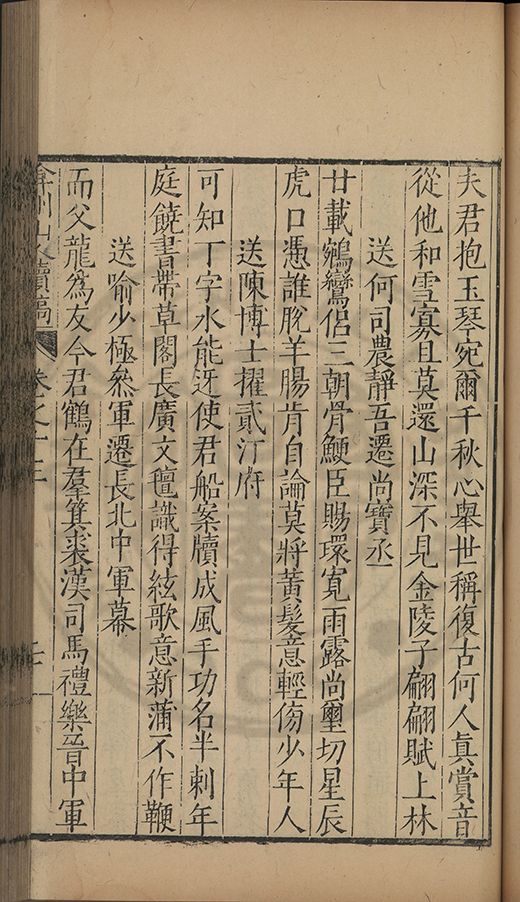 夫君抱玉琴宛爾千秋心舉世稱復古何人真賞音
從他和雪寡且莫還山深不見金陵子翩翩賦上林
送何司農靜吾遷尚寶丞
廿載鵷鸞侶三朝骨鯁臣賜環寬雨露尚璽切星辰
虎口憑誰脫羊腸肯自論莫將黃髮意輕傍少年人
送陳博士擢貳汀府
可知丁字水能迓使君船案牘成風手功名半刺年
庭饒書帶草閣長廣文氊識得絃歌意新蒲不作鞭
送喻少極叅軍遷長北中軍幕
而父龍為友今君鶴在羣箕裘漢司馬禮樂晉中軍
弇州山人續稿 卷之十三